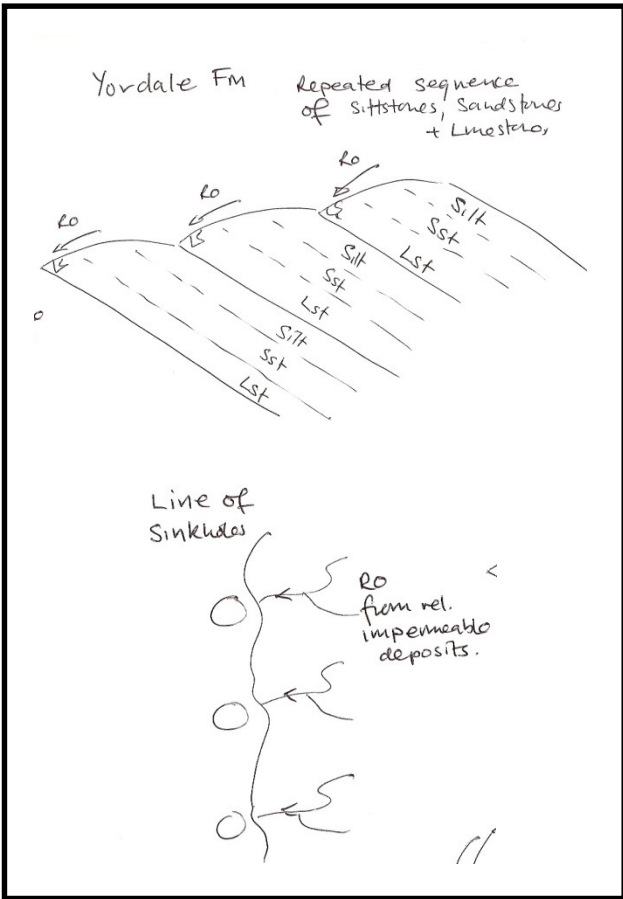 Yordale FM
Repeated sequence
of Siltstones, Sandstones
+ Lmestono,
RO
RO
RO
Silt
Sst
Lst
Silt
Sst
Lst
Silt
Sst
Lst
Line of
Sinkholes
RO
from rel.
impermeable
deposits.